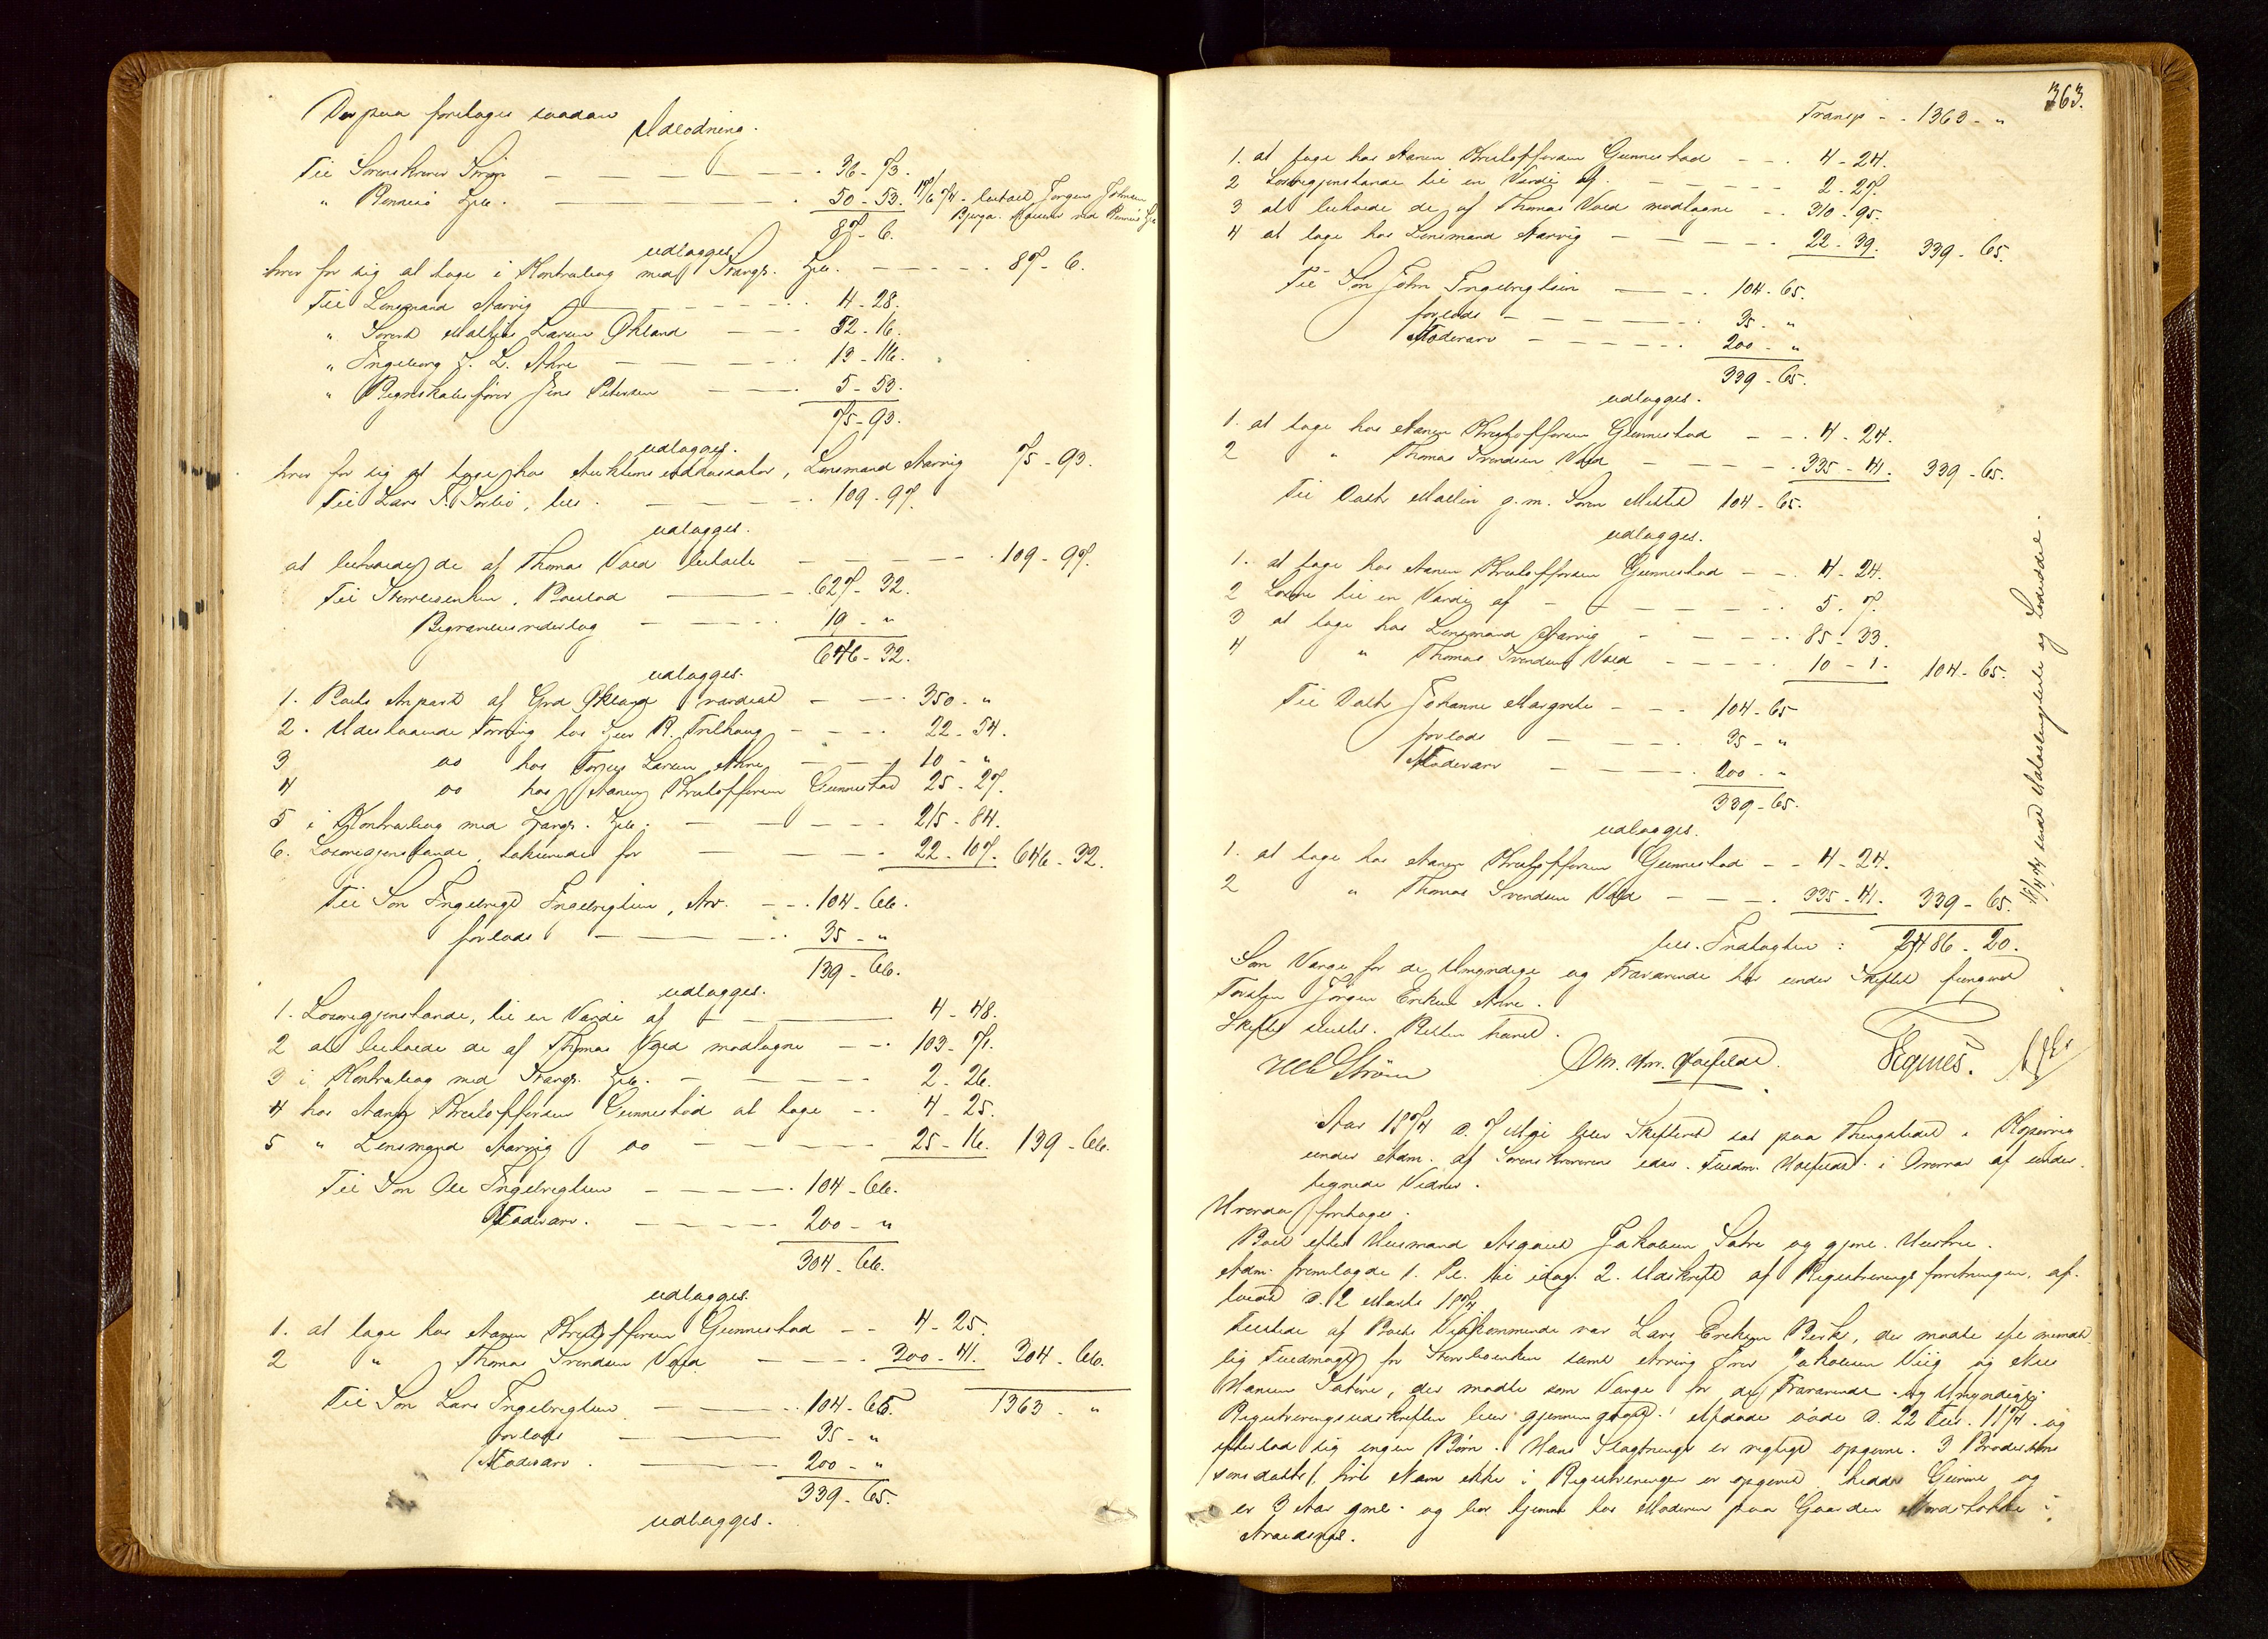 Derpaa foretoges saadan
Udlodning.
Til Sorenskriver Strøm — — — — 36 - 73.
" Rennesø — — 50 - 53. 17/6 74 - betalt Jørgen Johnsen
87 - 6.
udlægges
hver for sig at tage i Kontrabog med Stavgr. — — — 87 - 6.
Til Lensmand Aarvig — — — 4 - 28.
" Malene Larsen Økland — — 52 - 16.
" Ingeborg J. L. Akre — — 13 - 116.
" Regnskabsfører Jens Petersen — — 5 - 53.
75 - 93.
udlægges.
hver for sig at tage hos Auktions Inkassator, Lensmand Aarvig 75 - 93.
Til Lars T. Sørbø, — — 109 - 97.
udlægges.
at beholde de af Thomas Vold betalte — — — 109 - 97.
Til Sterbsenken, Boslod — — 627 - 32.
Begravelsesvederlag — — 19 - "
646 - 32.
udlægges.
1. Boets Anpart af Grd Økland værdsat — — 350 - "
2. Udestaaende Fordring hos — — 22 - 54.
3 do hos Torjus Larsen Akre — — 10 - "
4 do hos Aanen Kristoffersen Gunnestad 25 - 27.
5 i Kontrabog med — — — 215 - 84.
6. Løsøregjenstande, takserede for — — 22 - 107. 646 - 32.
Til Søn Ingebregt Ingebregtsen, Arv. — — 104 - 66.
forlods — — 35 - "
139 - 66.
udlægges.
1. Løsøregjenstande, til en Værdi af — — 4 - 48.
2 at beholde de af Thomas Vold modtagne — — 103 - 71.
3 i Kontrabog med Stavgr. — — — 2 - 26.
4 hos Aanen Kristoffersen Gunnestad at tage — — 4 - 25.
5 " Lensmand Aarvig do — — — 25 - 16. 139 - 66.
Til Søn Ole Ingebregtsen — — — 104 - 66.
Moderarv. — — — 200 - "
304 - 66.
udlægges.
1. at tage hos Aanen Kristoffersen Gunnestad — — 4 - 25.
2 " Thomas Svendsen Vold — — — 300 - 41. 304 - 66.
Til Søn Lars Ingebregtsen — — 104 - 65. 1363 - "
forlods — — 35 - "
Moderarv. — — 200 - "
339 - 65.
udlægges.
363.
Transp - - 1363 - "
1. at tage hos Aanen Kristoffersen Gunnestad — — 4 - 24.
2 Løsøregjenstande til en Værdi af — — — 2 - 27.
3 at beholde de af Thomas Vold modtagne — — 310 - 95.
4 at tage hos Lensmand Aarvig — — — 22 - 39. 339 - 65.
Til Søn John Ingebregtsen — — 104 - 65.
forlods — — — 35 - "
Moderarv — — — 200 - "
339 - 65.
udlægges.
1. at tage hos Aanen Kristoffersen Gunnestad — — 4 - 24.
2 " Thomas Svendsen Vold — — — 335 - 41. 339 - 65.
Til Datter Mallin g. m. Søren 104 - 65.
udlægges.
1. at tage hos Aanen Kristoffersen Gunnestad — — 4 - 24.
2 Løsøre til en Værdi af — — — 5 - 7.
3 at tage hos Lensmand Aarvig — — — 85 - 33.
4 " Thomas Svendsen Vold — — — 10 - 1. 104 - 65.
Til Datter Johanne Margrete — — 104 - 65
forlods — — 35 - "
Moderarv — — — 200 - "
339 - 65.
udlægges.
1. at tage hos Aanen Kristoffersen Gunnestad — — 4 - 24.
2 " Thomas Svendsen Vold — — — 335 - 41. 339 - 65.
lig. Indtægten : 2486 - 20.
Som Værge for de Umyndige og Fraværende har under Skiftet fungeret
Torstein Jørgen Eriksen Akre.
Skiftet sluttet. Retten hævet.
Strøm
Aar 1874 d. 7 Mai blev Skifteret sat paa Thingstedet i Kopervig
under Adm. af Sorenskriverens edsv. Fuldm. i Overvær af under-
tegnede Vidner.
Hvorda foretoges:
Boet efter Husmand Asgaut Jakobsen Sætre og gjenl. Hustru.
Adm. fremlagde 1. Pl. til idag. 2. Udskrift af Registreringsforretningen, af-
holdt d. 12 Marts 1874.
Tilstede af Boets Vedkommende var Lars Eriksen Birk, der mødte efter mundt-
lig Fuldmagt for Sterbsenken samt Arving Iver Jakobsen Viig og Nils
Hansen Sætre, der mødte som Værge for de Fraværende og Umyndige.
Registreringsudskriften blev gjennemgaaet. Afdøde døde d. 22 Feb. 1874 og
efterlod sig ingen Børn. Hans Slægtninge er rigtigt opgivne. 3 Broders
sønsdatter, hvis Navn ikke i Registreringen er opgivet, hedder Gurine og
er 3 Aar gml. og bor hjemme hos Moderen paa Gaarden Nordstokke i
Avaldsnes.